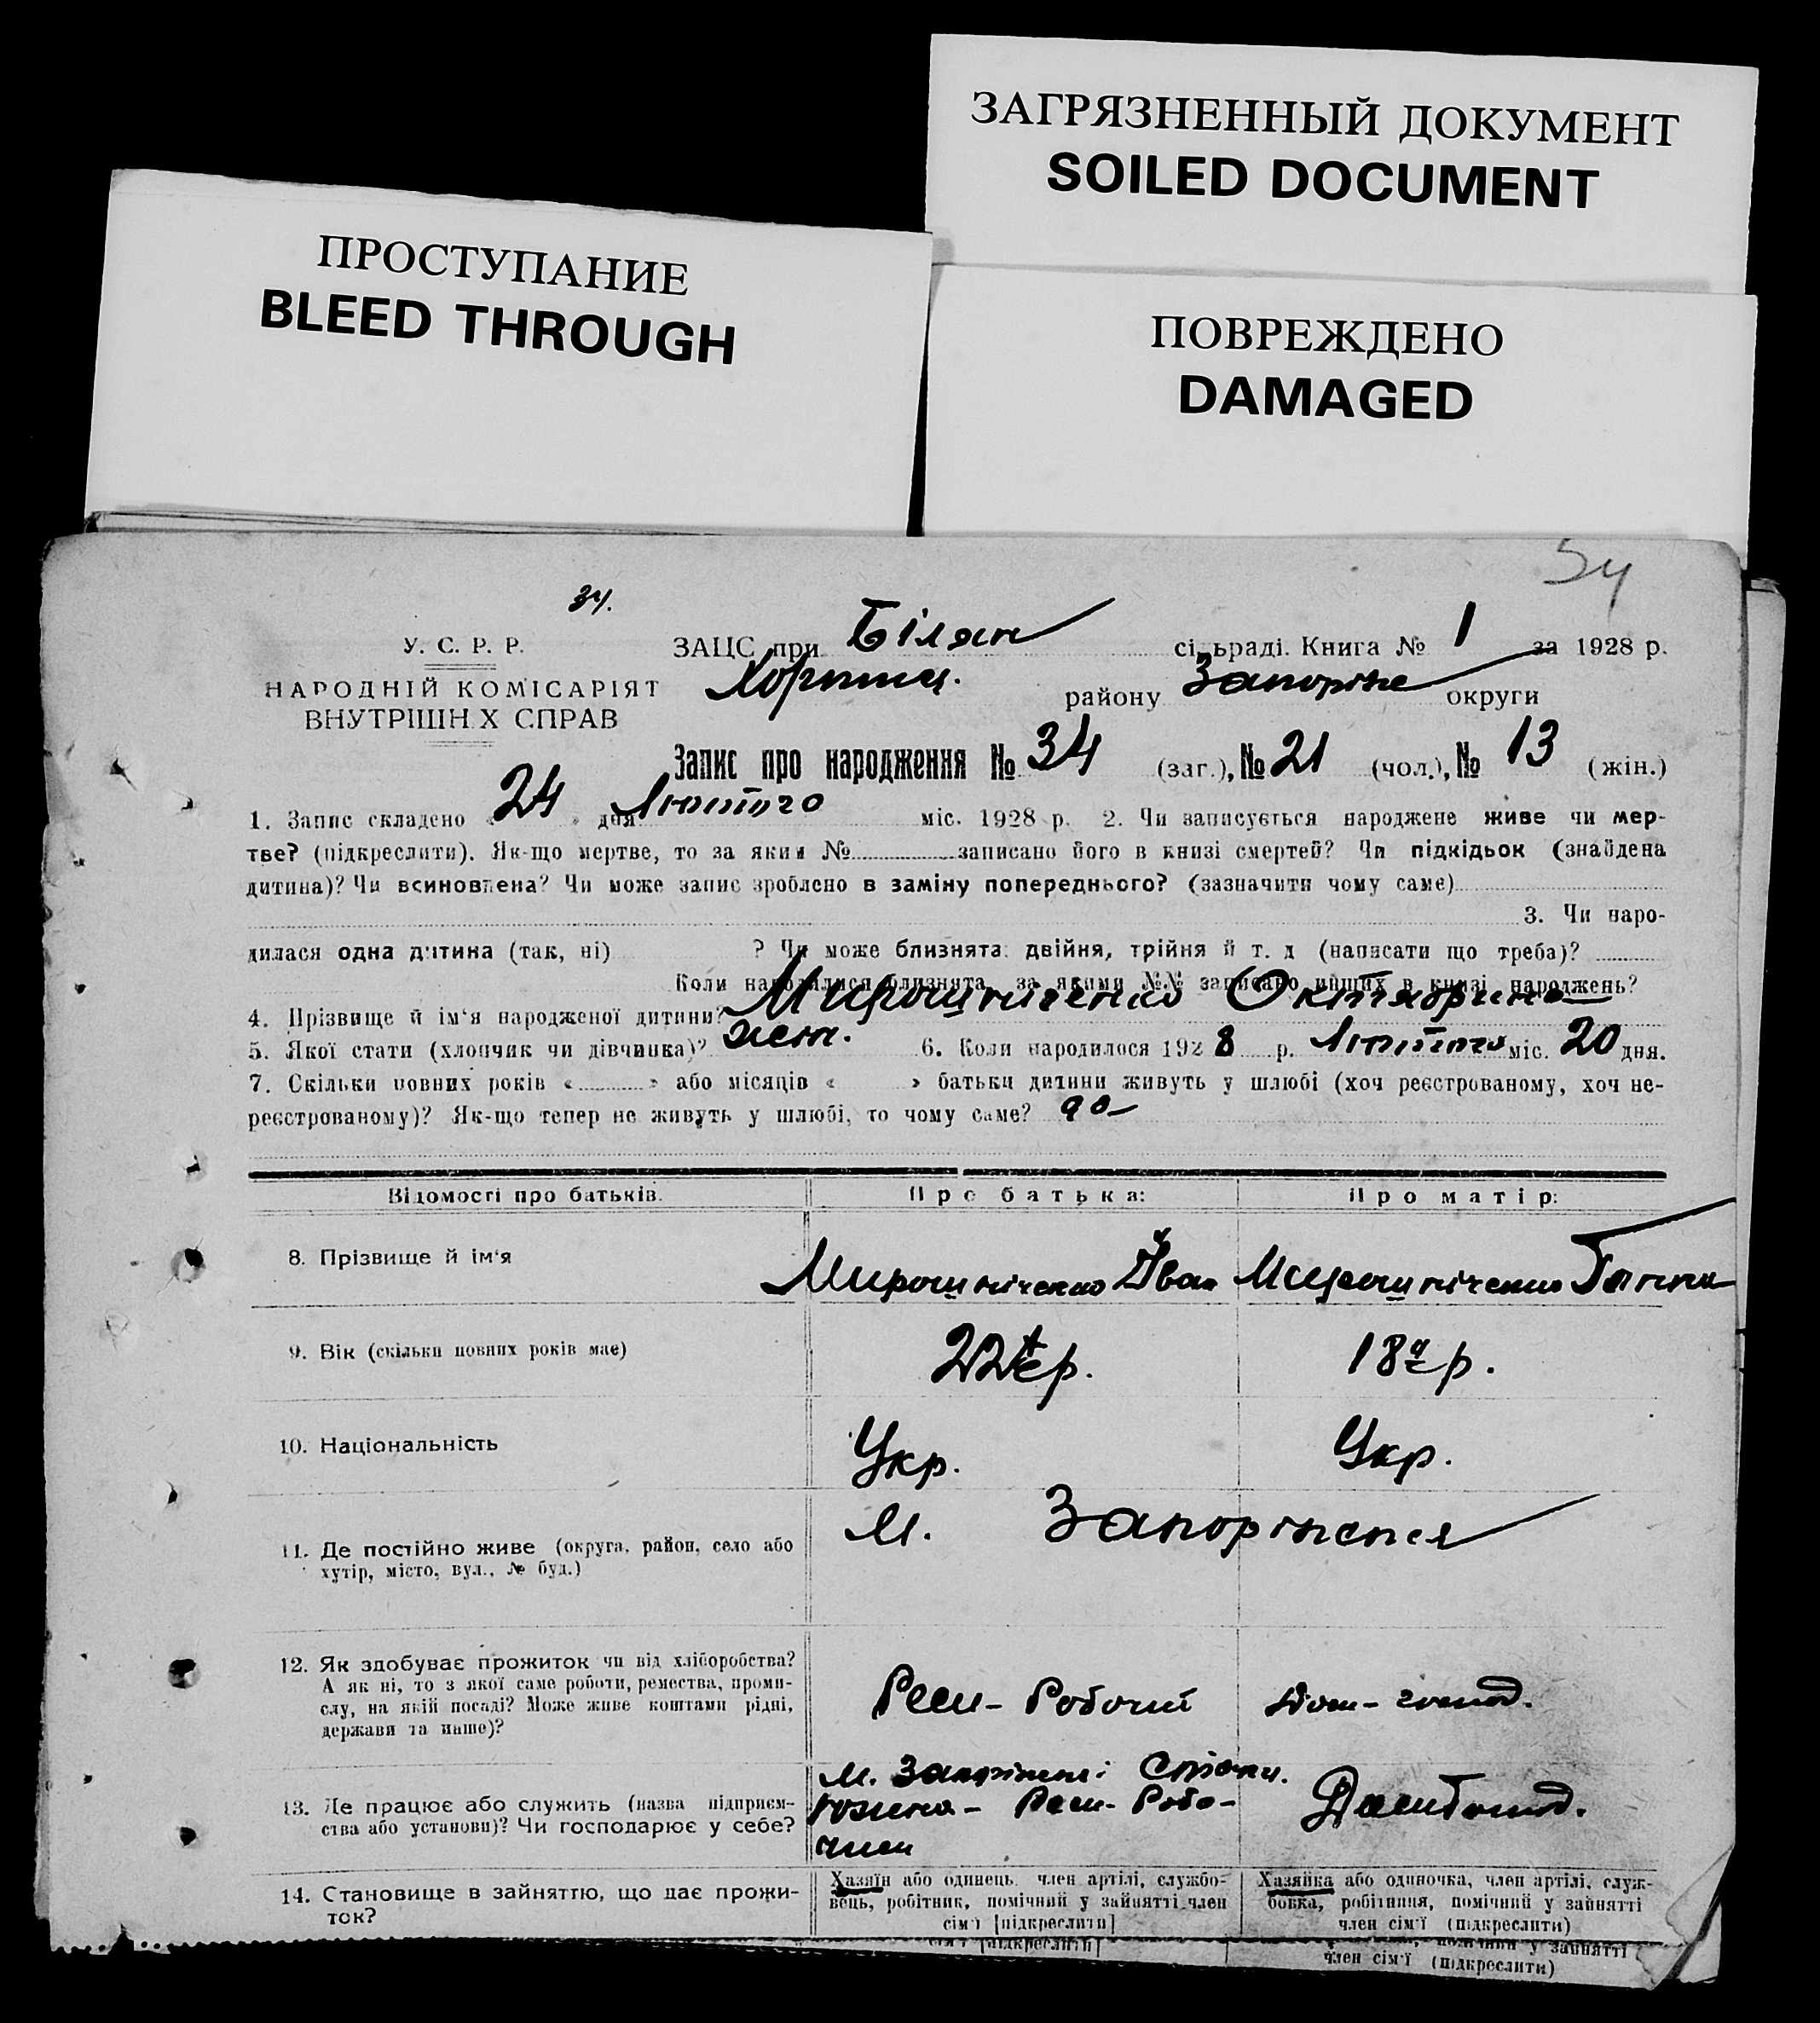 ЗАГРЯЗНЕННЫЙ ДОКУМЕНТ
SOILED DOCUMENT
ПРОСТУПАНИЕ
BLEED THROUGH
ПОВРЕЖДЕНО
DAMAGED
34.
У. С. Р. Р.
НАРОДНІЙ КОМІСАРІЯТ
ВНУТРІШН Х СПРАВ
ЗАЦС при Білян сільраді. Книга № 1 за 1928 р.
Хортиц. району Запоріж округи
Запис про народження № 34 (заг.), № 21 (чол.), № 13 (жін.)
1. Запис складено « 24 » дня Лютого міс. 1928 р. 2. Чи записується народжене живе чи мер-
тве? (підкреслити). Як-що мертве, то за яким № записано його в книзі смертей? Чи підкідьок (знайдена
дитина)? Чи всиновлена? Чи може запис зроблено в заміну попереднього? (зазначити чому саме)
3. Чи наро-
дилася одна дитина (так, ні) ? Чи може близнята: двійня, трійня й т. д (написати що треба)?
Коли народилися близнята, за якими №№ записано инших в книзі народжень?
4. Прізвище й ім'я народженої дитини? Мирошніченко Октябрина
5. Якої стати (хлопчик чи дівчинка)? жен. 6. Коли народилося 192 8 р. Лютого міс. 20 дня.
7. Скільки повних років « » або місяців « » батьки дитини живуть у шлюбі (хоч реєстрованому, хоч не-
реєстрованому)? Як-що тепер не живуть у шлюбі, то чому саме?
Відомості про батьків. Про батька: Про матір:
8. Прізвище й ім'я Мирошніченко Іван Мирошніченко Ганна
9. Вік (скільки повних років має) 22 р. 18 р.
10. Національність Укр. Укр.
11. Де постійно живе (округа, район, село або
хутір, місто, вул., № буд.)
М. Запоріжжя
12. Як здобуває прожиток чи від хліборобства?
А як ні, то з якої саме роботи, ремества, проми-
слу, на якій посаді? Може живе коштами рідні,
держави та инше)?
Рем- Робочий Дом- господ.
13. Де працює або служить (назва підприєм-
ства або установи)? Чи господарює у себе?
М. Запоріжжі
Рем- Робо-
чим
14. Становище в зайняттю, що дає прожи-
ток?
Хазяїн або одинець. член артілі, службо-
вець, робітник, помічний у зайнятті член
сім'ї [підкреслити]
Хазяйка або одиночка, член артілі, служ-
бовка, робітниця, помічний у зайнятті
член сім'ї (підкреслити)
сім'ї [підкреслити]
помічний у зайнятті
член сім'ї (підкреслити)